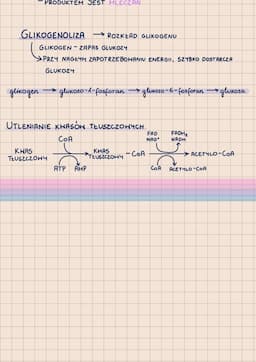 - PRODUKTEM JEST MLECZAN
GLIKOGENOLIZA → ROZKŁAD GLIKOGENU
GLIKOGEN - ZAPAS GLUKOZY
→ PRZY NAGŁYM ZAPOTRZEBOWANIU ENERGII, SZYBKO DOSTARCZA
GLUKOZY
glikogen → glukozo-1-fosforan → glukozo-6-fosforan → glukoza
UTLENIANIE KWASÓW TŁUSZCZOWYCH
CoA
FAD FADH₂
NAD⁺ NADH
KWAS → KWAS - CoA → ACETYLO-CoA
TŁUSZCZOWY TŁUSZCZOWY
ATP AMP
CoA ACETYLO-CoA